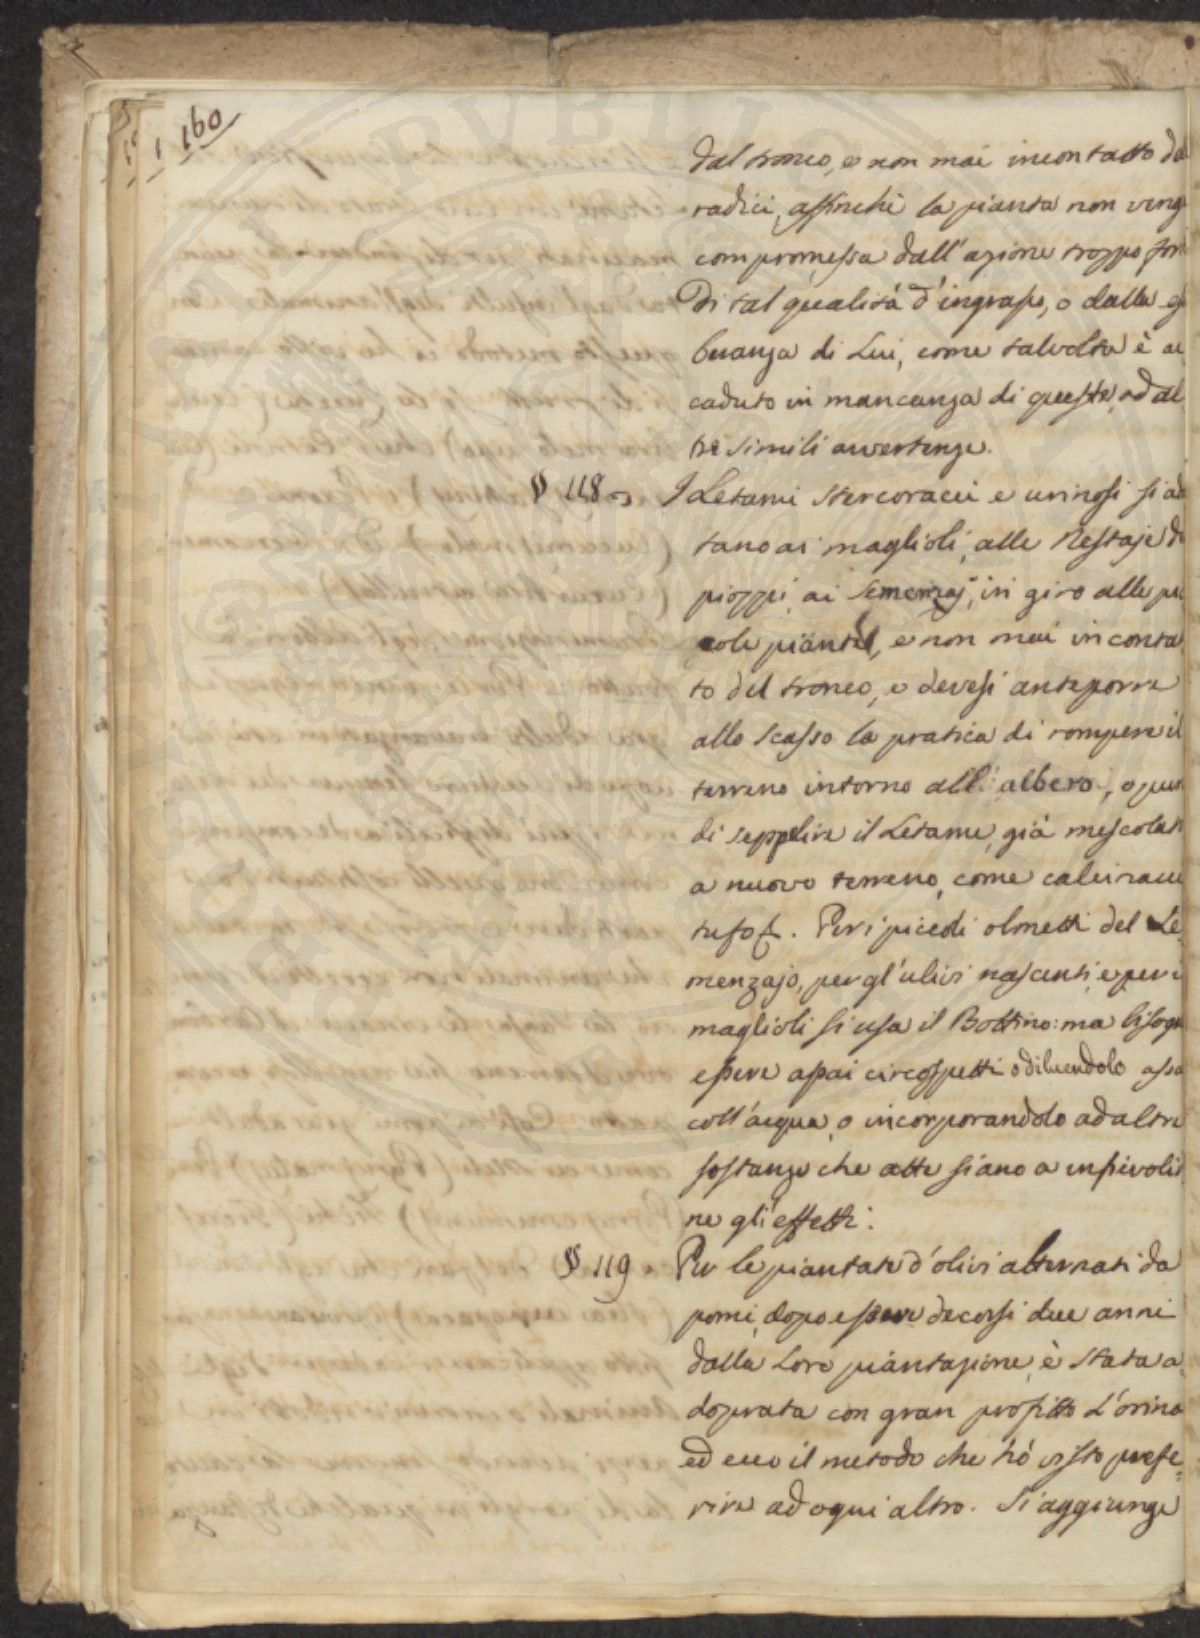 160
dal tronco, e non mai incontatto d
radici, affinchè la pianta non veng
compromessa dall'azione troppo for
di tal qualità d'ingrasso, o dalla
buanza di Lui, come talvolta è ac
caduto in mancanza di queste, ad al
tre simili avvertenze.
§ 118 I Letami Stercoracei e urinosi si ad
tano ai maglioli, alle Nestaje d
pioppi, ai Semenzaj, in giro alle pi
cole piante, e non mai in contat
to del tronco, e devesi anteporre
allo scasso la pratica di rompere il
terreno intorno all' albero, oppur
di seppelire il Letame, già mescolat
a nuovo terreno, come calcinacci
tufo &. Per i piccoli olmetti del Se
menzajo, per gl'ulivi nascenti, e per i
maglioli si usa il Bottino: ma bisogn
essere assai circospetti o diluendolo assa
coll'acqua, o incorporandolo ad altre
sostanze che atte siano a infievolir
ne gli effetti.
§ 119 Per le piantate d'olivi alternati da
pomi, dopo essere decorsi due anni
dalla Loro piantazione, è stata a
doprata con gran profitto L'orina
ed ecco il metodo che hò visto prefe=
rire ad ogni altro. Si aggiunge